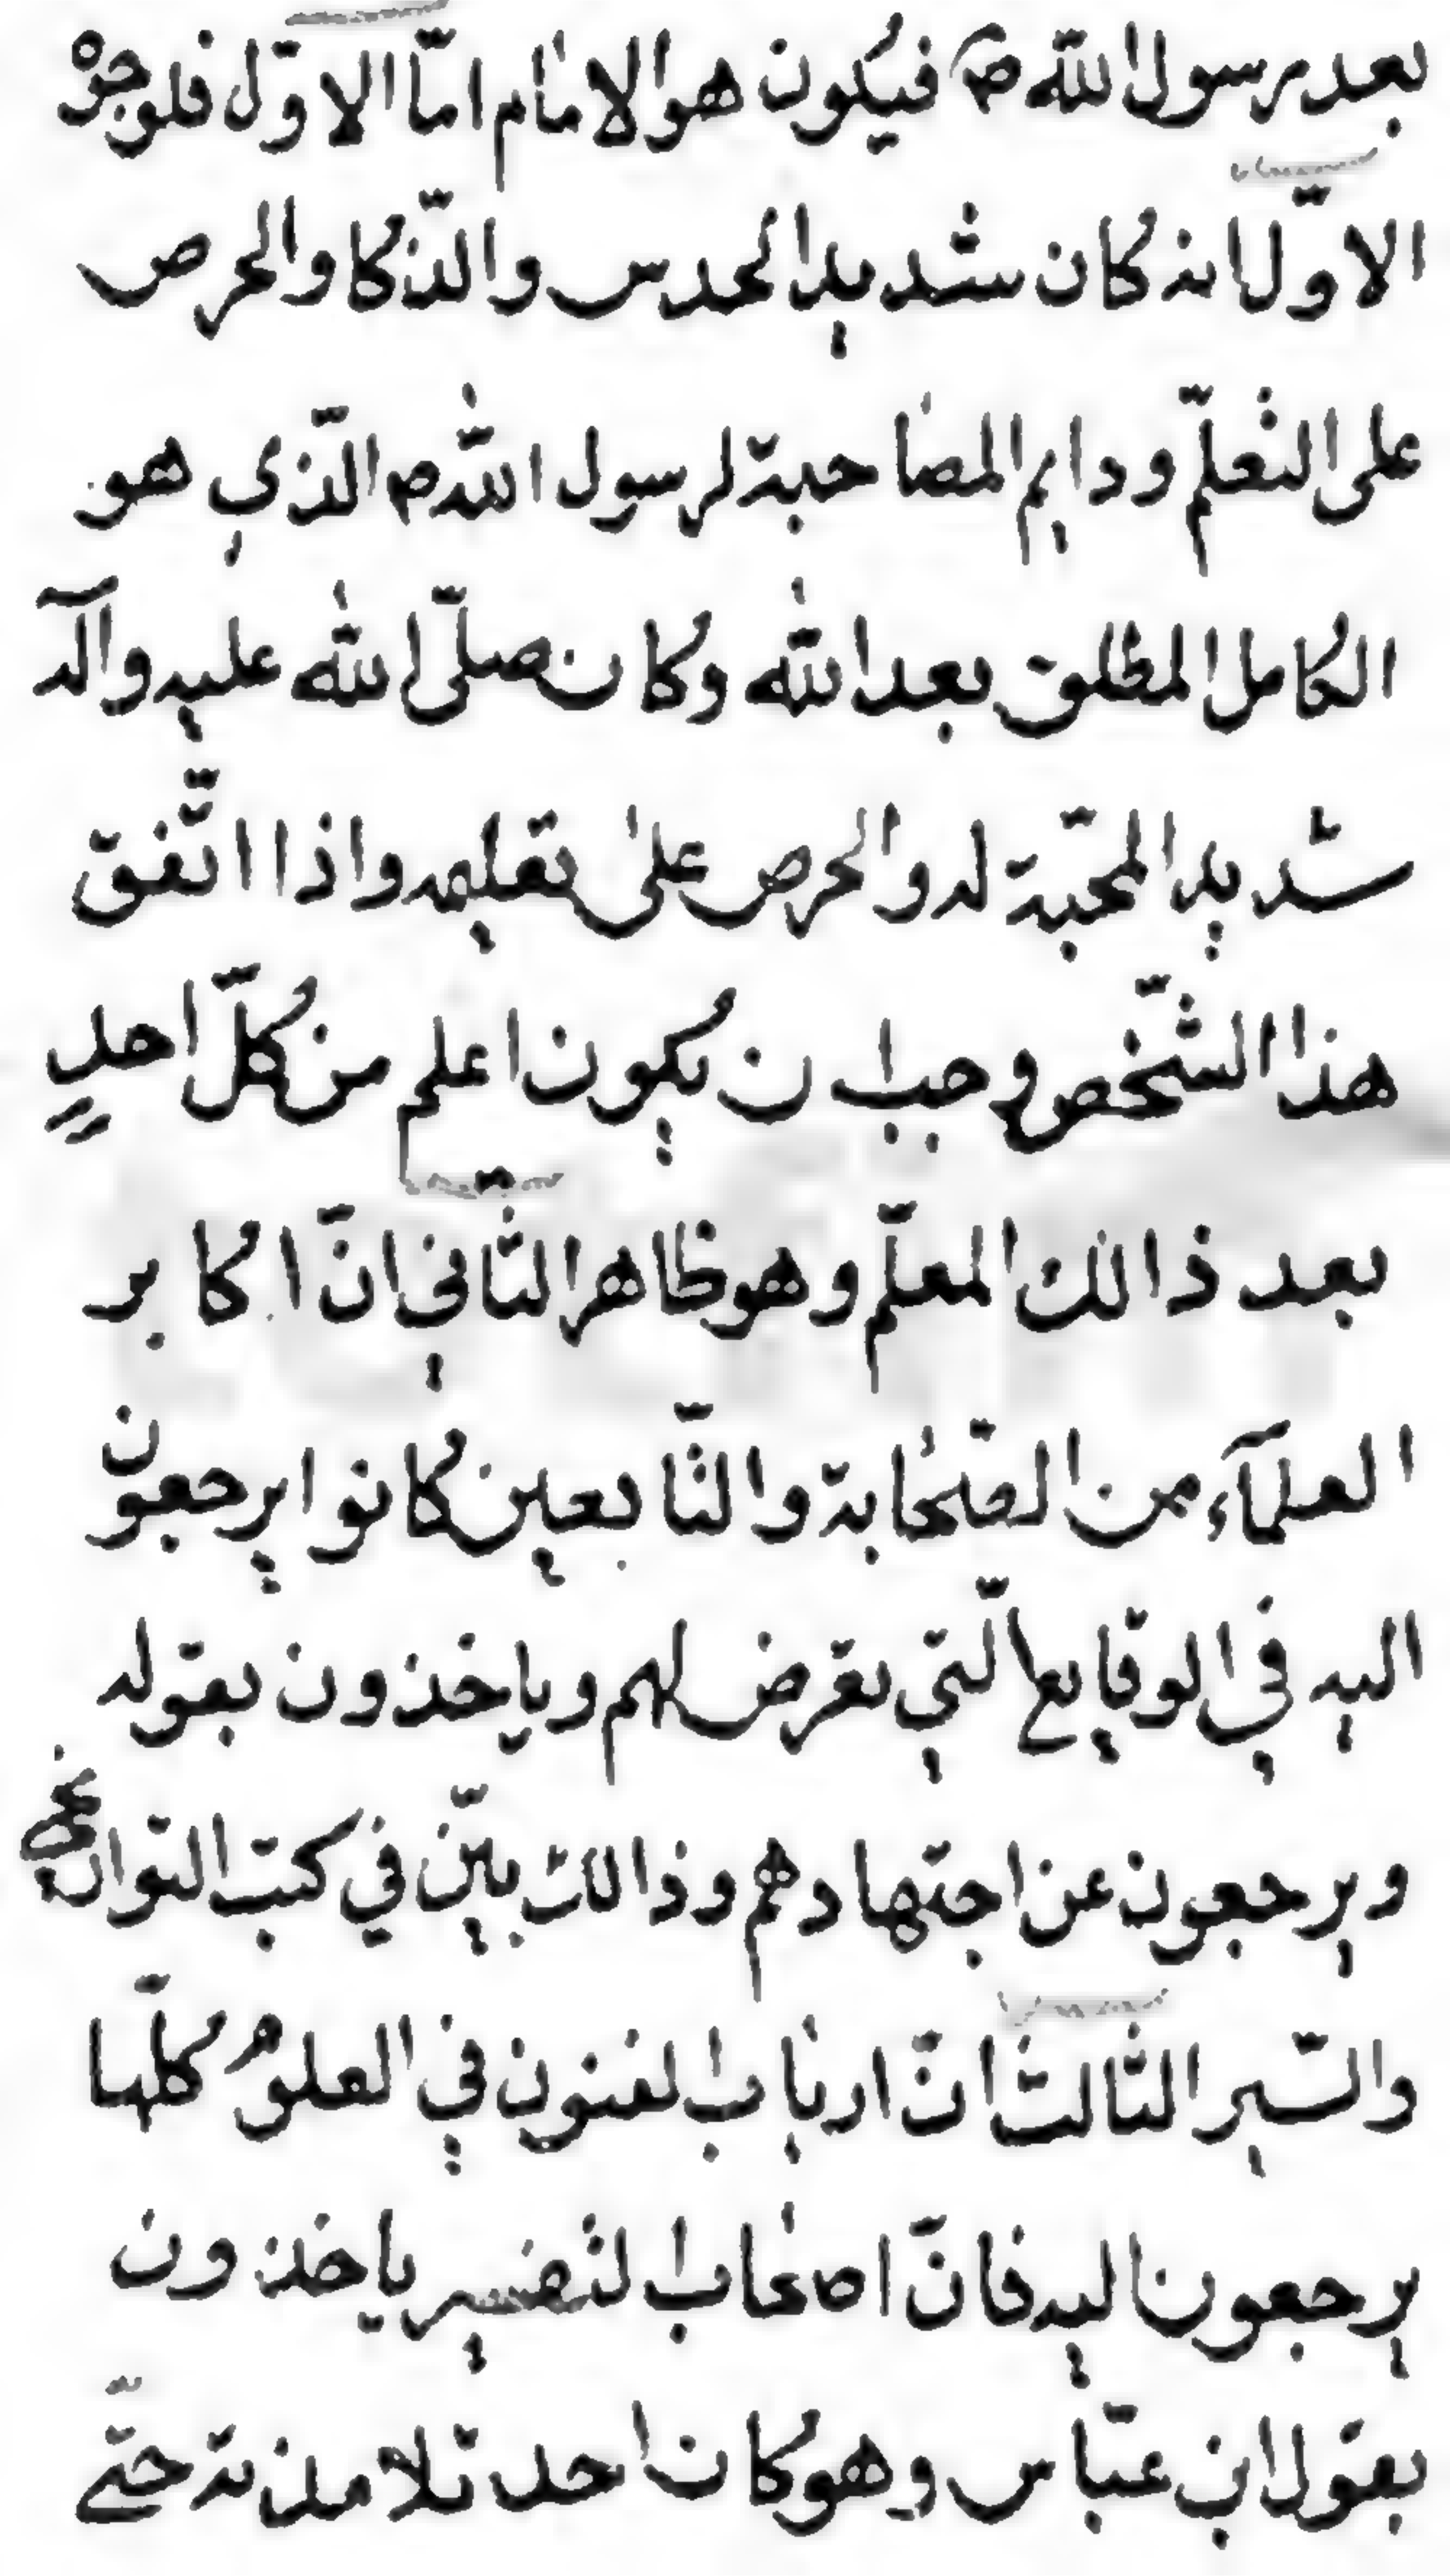 بعد رسول الله ص فيكون هو الامام امّا الاوّل فلوجوه
الاوّل انه كان شديد الحدس والذّكا والحرص
على التعلّم ودايم المصاحبة لرسول الله ص الّذي هو
الكامل المطلق بعد الله وكان صلّى الله عليه وآله
شديد المحبّة له والحرص على تعليمه واذا اتّفق
هذا الشّخص وجب ان يكون اعلم من كلّ احدٍ
بعد ذالك المعلّم وهو ظاهر الثّاني انّ اكابر
العلمآء من الصّحابة والتّابعين كانوا يرجعون
اليه في الوقايع الّتي تعرض لهم وياخذون بقوله
ويرجعون عن اجتهادهم وذالك بيّن في كتب التواريخ
والسّير الثّالث انّ ارباب الفنون في العلوم كلّها
يرجعون اليه فانّ اصحاب التفسير ياخذون
بقول ابن عبّاس وهو كان احد تلامذته حتّى